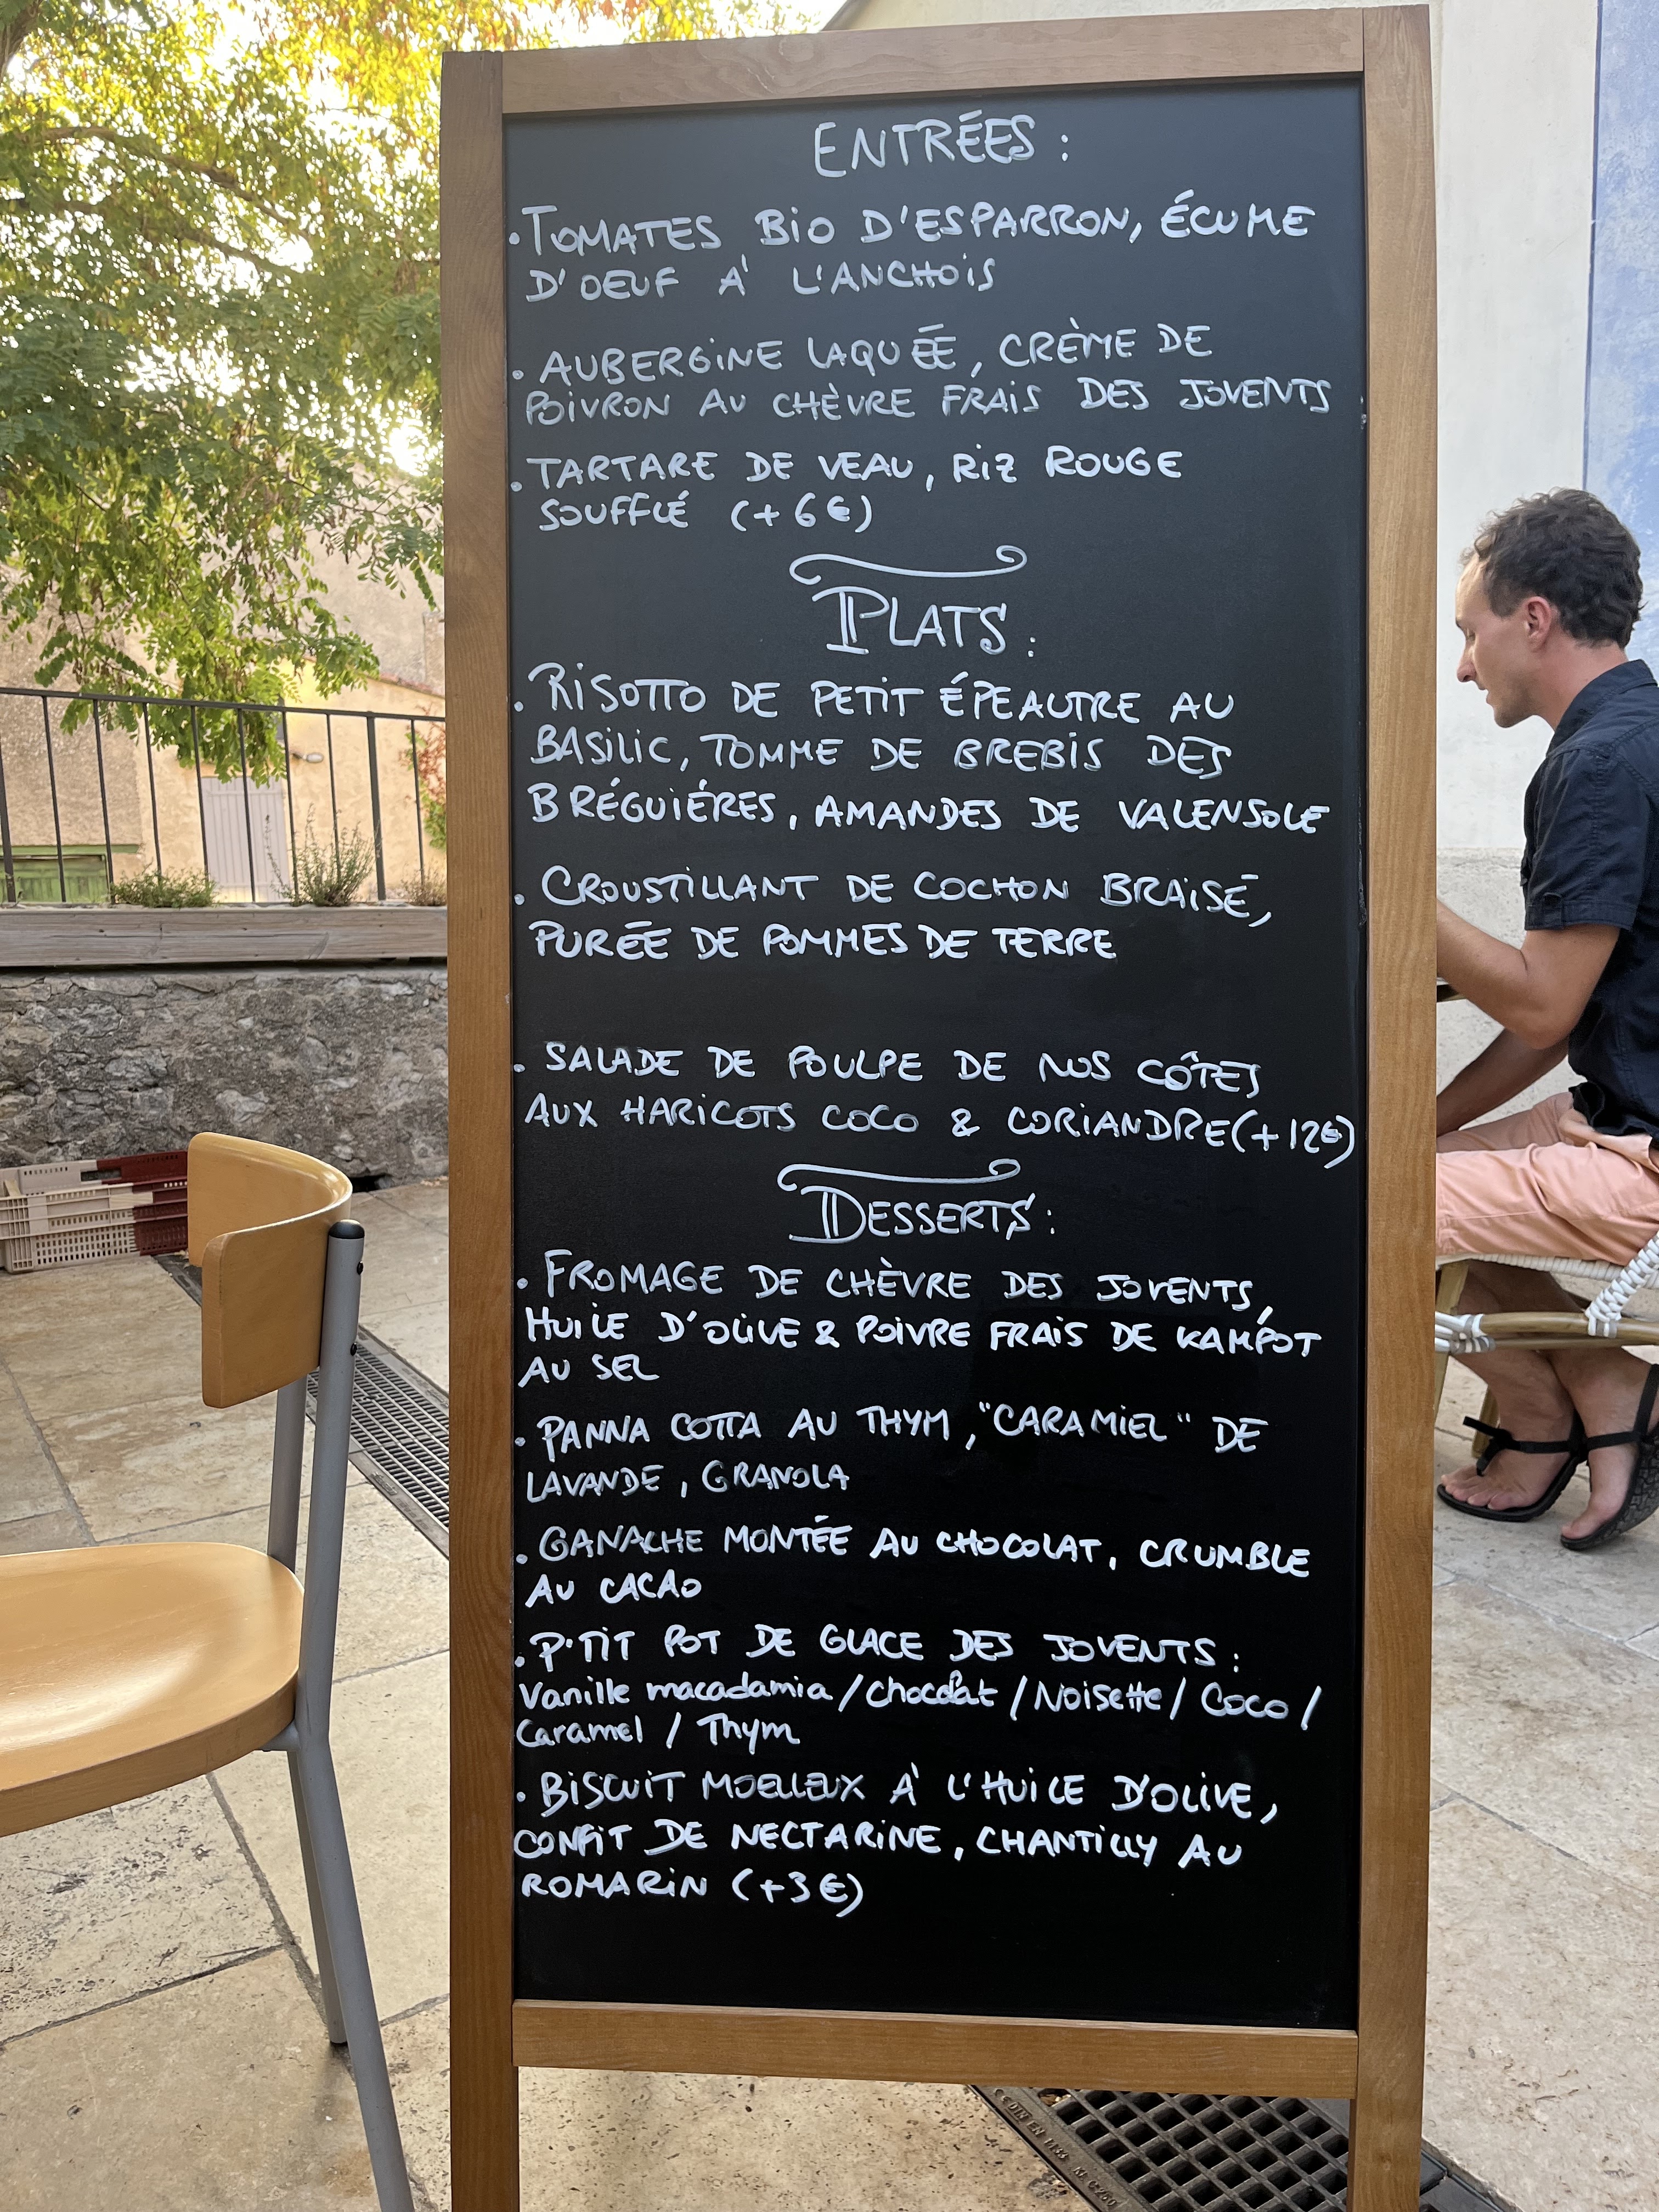 ENTRÉES :
. TOMATES BIO D'ESPARRON, ÉCUME
D'OEUF À L'ANCHOIS
. AUBERGINE LAQUÉE, CRÈME DE
POIVRON AU CHÈVRE FRAIS DES JOVENTS
. TARTARE DE VEAU, RIZ ROUGE
SOUFFLÉ (+6€)
PLATS :
. RISOTTO DE PETIT ÉPEAUTRE AU
BASILIC, TOMME DE BREBIS DES
BRÉGUIÉRES, AMANDES DE VALENSOLE
. CROUSTILLANT DE COCHON BRAISÉ,
PURÉE DE POMMES DE TERRE
. SALADE DE POULPE DE NOS CÔTES
AUX HARICOTS COCO & CORIANDRE (+12€)
DESSERTS :
. FROMAGE DE CHÈVRE DES JOVENTS,
HUILE D'OLIVE & POIVRE FRAIS DE KAMPOT
AU SEL
. PANNA COTTA AU THYM, "CARAMIEL" DE
LAVANDE, GRANOLA
. GANACHE MONTÉE AU CHOCOLAT, CRUMBLE
AU CACAO
. P'TIT POT DE GLACE DES JOVENTS :
Vanille macadamia / Chocolat / Noisette / Coco /
Caramel / Thym
. BISCUIT MOELLEUX À L'HUILE D'OLIVE,
CONFIT DE NECTARINE, CHANTILLY AU
ROMARIN (+3€)